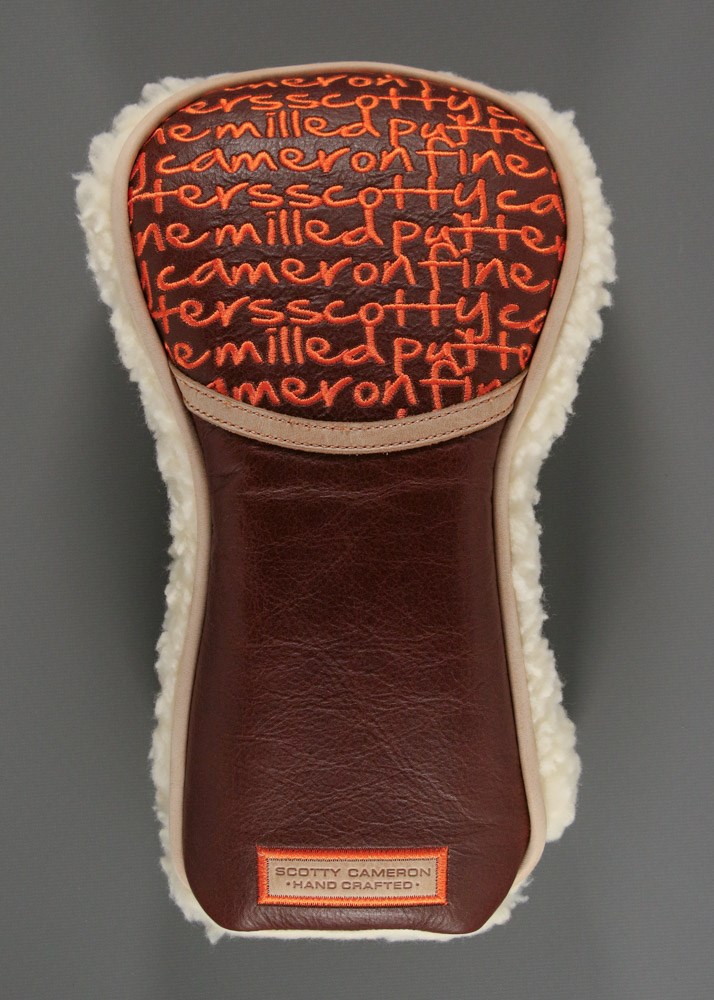 cameronfin
ersscotty
nemilledputte
ycameronfine
tersscottyca
nemilledputter
ycameronfine
tersscottyca
emilledputte
cameronfin
SCOTTY CAMERON
•HAND CRAFTED•